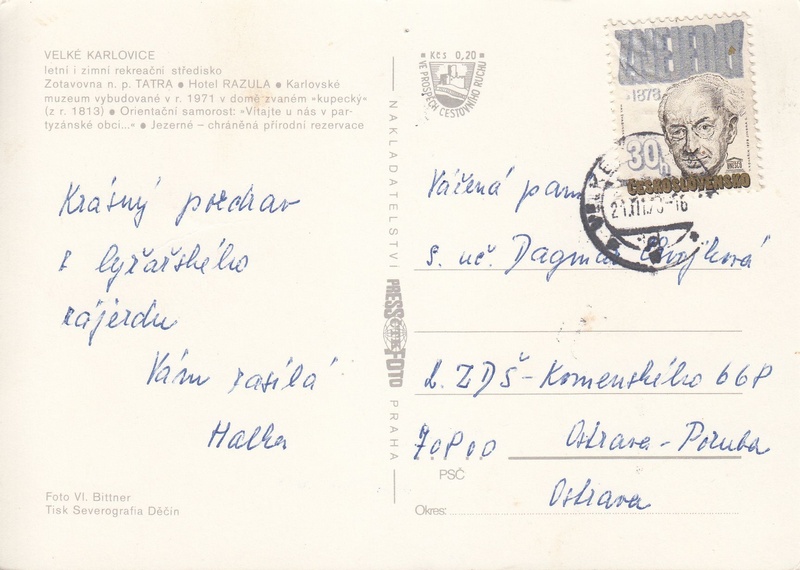 VELKÉ KARLOVICE
letní i zimní rekreační středisko
Zotavovna n. p. TATRA ● Hotel RAZULA ● Karlovské
muzeum vybudované v r. 1971 v domě zvaném »kupecký«
(z r. 1813) ● Orientační samorost: »Vítajte u nás v par-
tyzánské obci...« ● Jezerné – chráněná přírodní rezervace
Krásný pozdrav
z lyžařského
zájezdu
Vám zasílá
Halka
Foto Vl. Bittner
Tisk Severografia Děčín
NAKLADATELSTVÍ
PRESSFOTO
PRAHA
Kčs 0,20
VE PROSPĚCH CESTOVNÍHO RUCHU
ZNEJEDLÝ
1878
30h
UNESCO
ČESKOSLOVENSKO
Vážená paní
s. uč. Dagmar
2. ZDŠ - Komenského 668
70800 Ostrava - Poruba
PSČ
Ostrava
Okres: